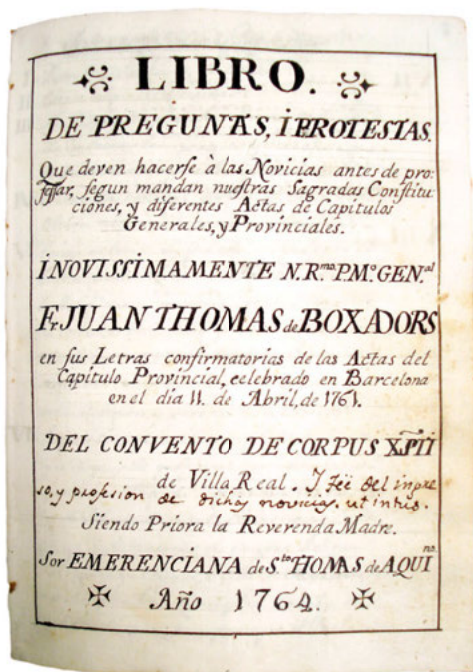 LIBRO.
DE PREGUNTAS, I PROTESTAS.
Que deven hacerse à las Novicias antes de pro-
fessar, segun mandan nuestras Sagradas Constitu
ciones, y diferentes Actas de Capitulos
Generales, y Provinciales.
INOVISSIMAMENTE N. R.mo P. M.o GEN.al
Fr. JUAN THOMAS de BOXADORS
en sus Letras confirmatorias de las Actas del
Capitulo Provincial, celebrado en Barcelona
en el dia 11. de Abril, de 1761.
DEL CONVENTO DE CORPUS XPTI
de Villa Real. I feè del ingre
so, y profesion de dichas novicias, ut intus.
Siendo Priora la Reverenda Madre.
Sor EMERENCIANA de S.to THOMAS de AQUINO.
Año 1764.